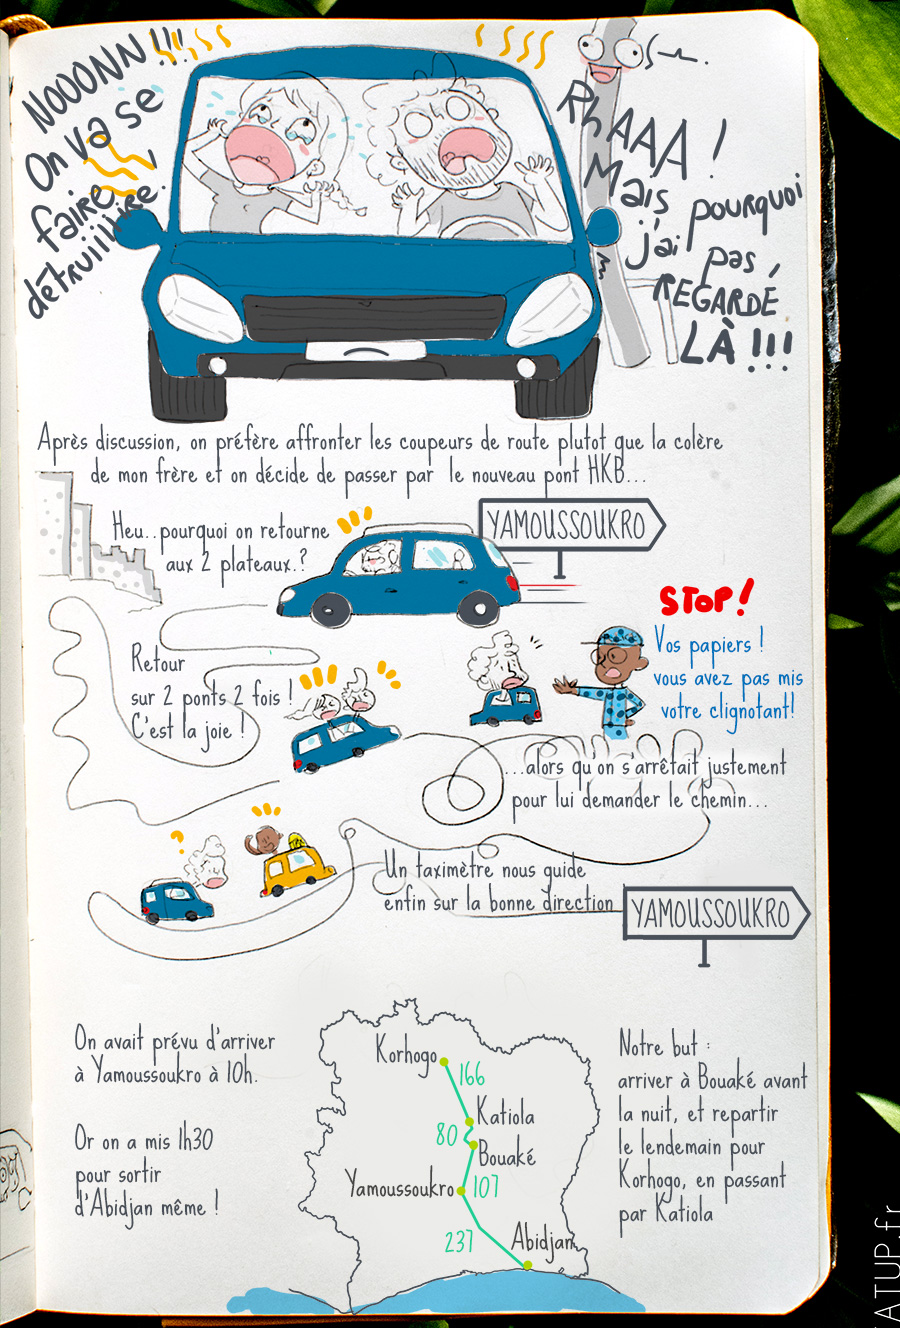 NOOONN !!!
On va se
faire
détruiiiiire.
RhAAA !
Mais pourquoi
j'ai pas
REGARDÉ
LÀ !!!
Après discussion, on préfère affronter les coupeurs de route plutot que la colère
de mon frère et on décide de passer par le nouveau pont HKB...
Heu...pourquoi on retourne
aux 2 plateaux.?
YAMOUSSOUKRO
STOP!
Vos papiers !
vous avez pas mis
votre clignotant!
Retour
sur 2 ponts 2 fois !
C'est la joie !
...alors qu'on s'arrêtait justement
pour lui demander le chemin...
?
Un taximètre nous guide
enfin sur la bonne direction !
YAMOUSSOUKRO
On avait prévu d'arriver
à Yamoussoukro à 10h.
Or on a mis 1h30
pour sortir
d'Abidjan même !
Korhogo
166
Katiola
80
Bouaké
Yamoussoukro
107
237
Abidjan
Notre but :
arriver à Bouaké avant
la nuit, et repartir
le lendemain pour
Korhogo, en passant
par Katiola
ATUP.fr